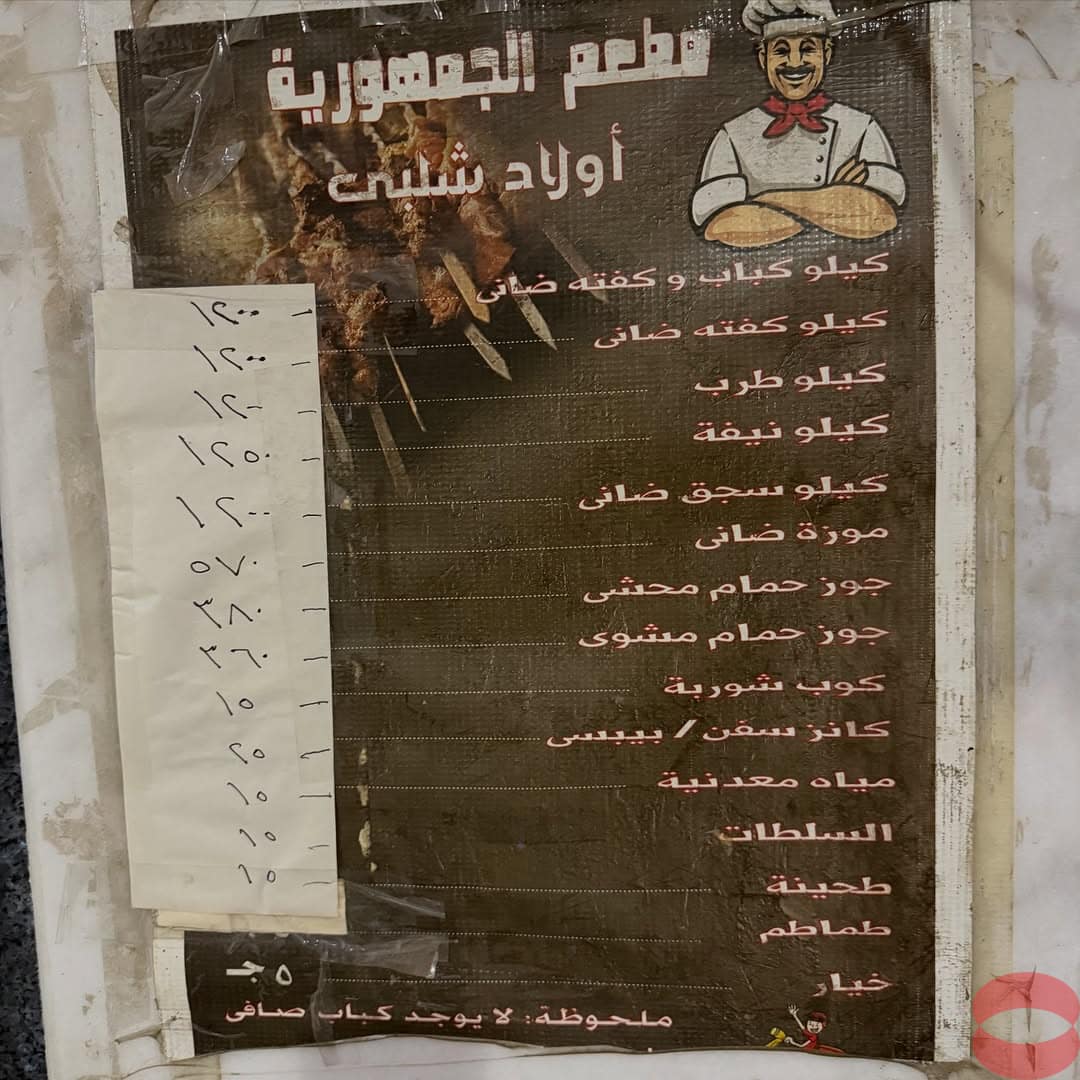 مطعم الجمهورية
أولاد شلبى
كيلو كباب و كفته ضانى
كيلو كفته ضانى
كيلو طرب
كيلو نيفة
كيلو سجق ضانى
موزة ضانى
جوز حمام محشى
جوز حمام مشوى
كوب شوربة ١٥
كانز سفن / بيبسى ٢٥
مياه معدنية ١٥
السلطات ١٥
طحينة ١٥
طماطم
خيار ٥ جـ
ملحوظة: لا يوجد كباب صافى